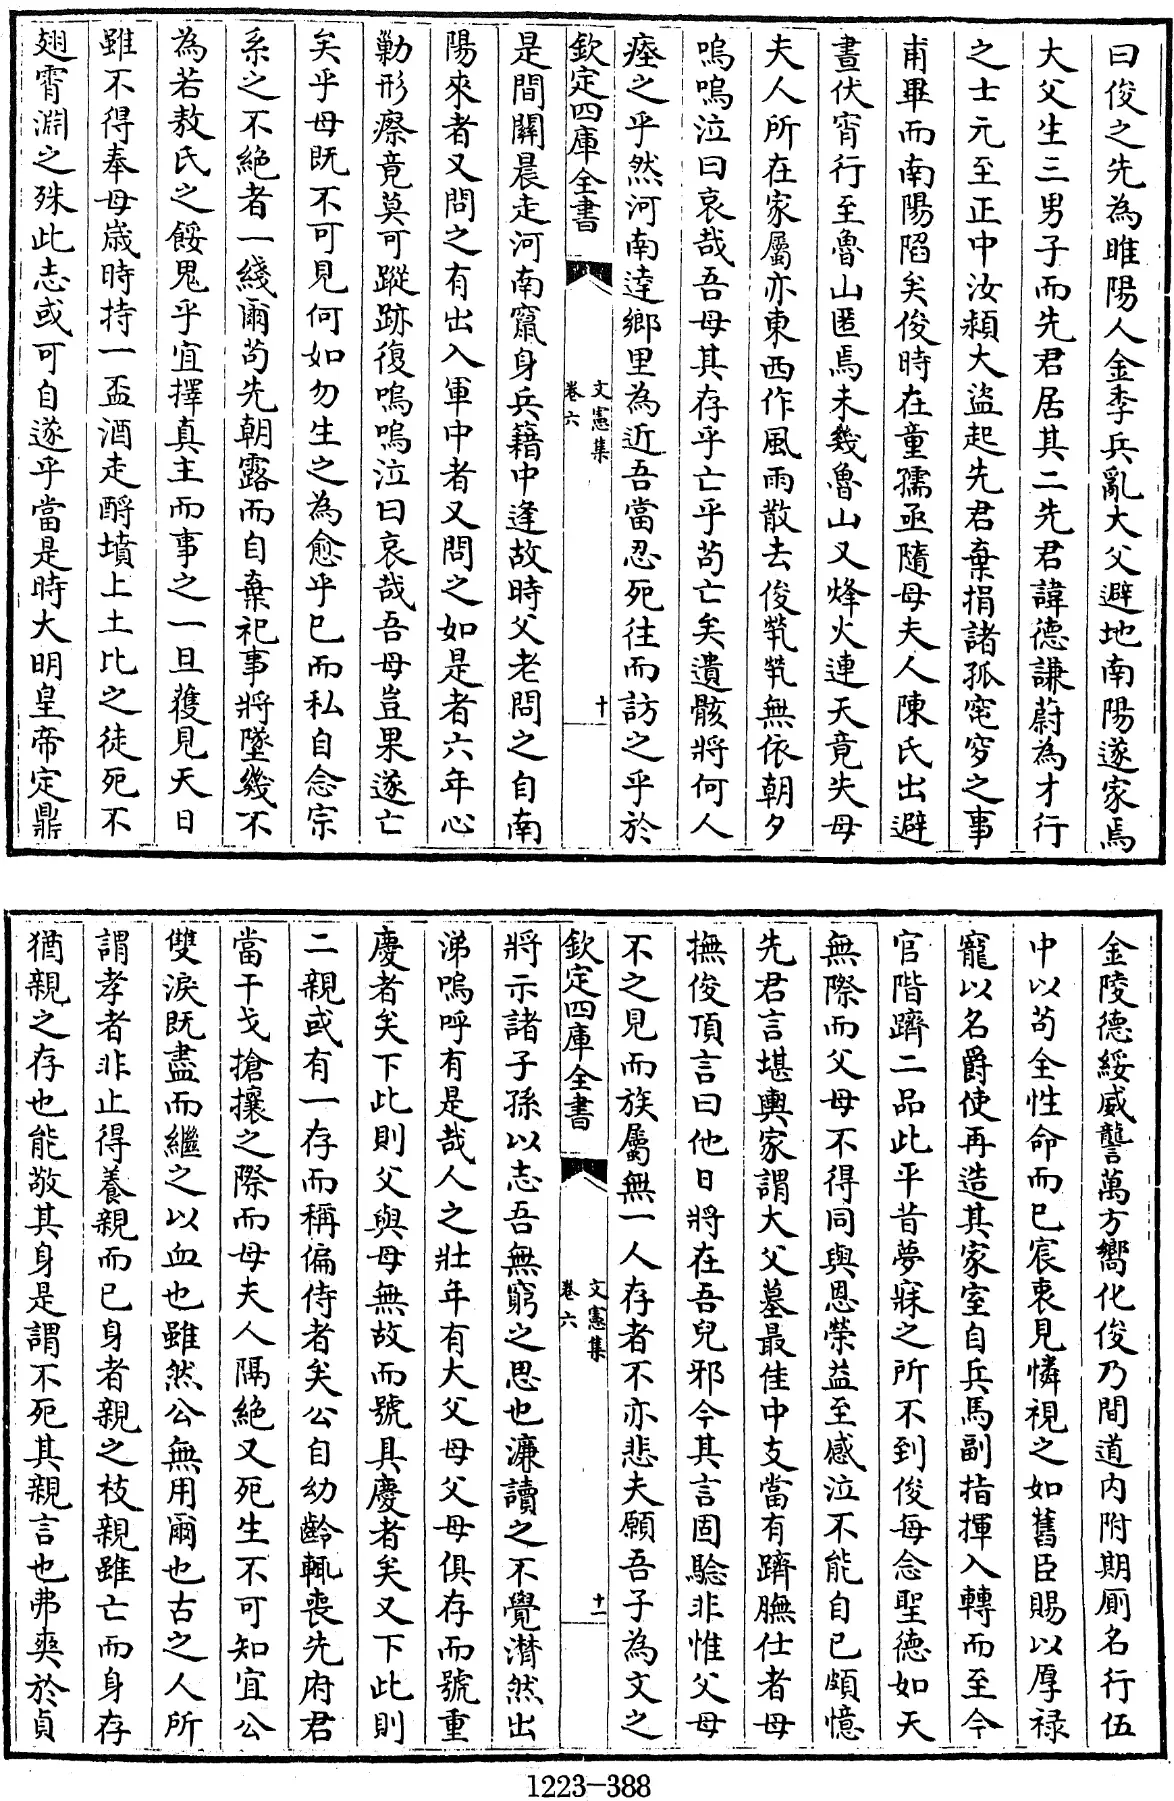 曰俊之先為睢陽人金季兵亂大父避地南陽遂家焉
大父生三男子而先君居其二先君諱德謙蔚為才行
之士元至正中汝潁大盜起先君棄捐諸孤窀穸之事
甫畢而南陽陷矣俊時在童孺亟隨母夫人陳氏出避
晝伏宵行至魯山匿焉未幾魯山又烽火連天竟失母
夫人所在家屬亦東西作風雨散去俊煢煢無依朝夕
嗚嗚泣曰哀哉吾母其存乎亡乎苟亡矣遺骸將何人
瘞之乎然河南逹鄉里為近吾當忍死往而訪之乎於
欽定四庫全書
文憲集
卷六
十
是間關晨走河南竄身兵籍中逢故時父老問之自南
陽來者又問之有出入軍中者又問之如是者六年心
勦形瘵竟莫可蹤跡復嗚嗚泣曰哀哉吾母豈果遂亡
矣乎母既不可見何如勿生之為愈乎已而私自念宗
系之不絶者一綫爾苟先朝露而自棄祀事將墜幾不
為若敖氏之餒鬼乎宜擇真主而事之一旦蒦見天日
雖不得奉母嵗時持一盃酒走酹墳上土比之徒死不
翅霄淵之殊此志或可自遂乎當是時大明皇帝定鼎
金陵德綏威讋萬方嚮化俊乃間道内附期厠名行伍
中以苟全性命而已宸衷見憐視之如舊臣賜以厚禄
寵以名爵使再造其家室自兵馬副指揮入轉而至今
官階躋二品此平昔夢寐之所不到俊每念聖德如天
無際而父母不得同與恩榮益至感泣不能自已頗憶
先君言堪輿家謂大父墓最佳中支當有躋膴仕者母
撫俊頂言曰他日將在吾兒邪今其言固騐非惟父母
不之見而族屬無一人存者不亦悲夫願吾子為文之
欽定四庫全書
文憲集
卷六
十一
將示諸子孫以志吾無窮之思也濂讀之不覺潸然出
涕嗚呼有是哉人之壯年有大父母父母俱存而號重
慶者矣下此則父與母無故而號具慶者矣又下此則
二親或有一存而稱偏侍者矣公自幼齡輒喪先府君
當干戈搶攘之際而母夫人隔絶又死生不可知宜公
雙淚既盡而繼之以血也雖然公無用爾也古之人所
謂孝者非止得養親而已身者親之枝親雖亡而身存
猶親之存也能敬其身是謂不死其親言也弗爽於貞
1223-388